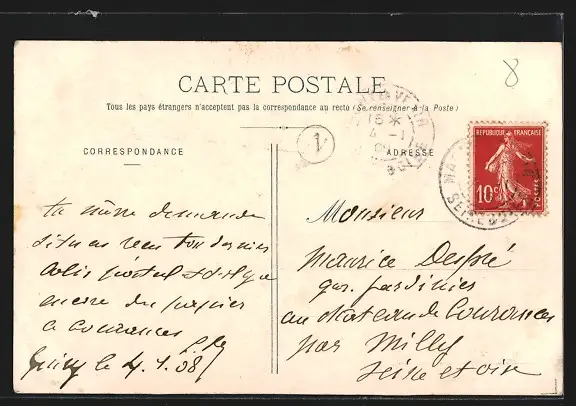 8
CARTE POSTALE
Tous les pays étrangers n'acceptent pas la correspondance au recto (Se renseigner à la Poste)
1
CORRESPONDANCE
ADRESSE
REPUBLIQUE FRANÇAISE
10c
POSTES
ta mère demande
si tu as reçu ton dernier
colis postal
encore du papier
a Courances
le 4.1.08
Monsieur
Maurice Desfié
jardinier
au chateau de Courances
par Milly
Seine et Oise